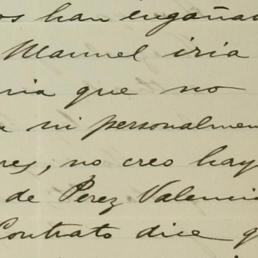 os han engañad
Manuel iria
ria que no
a ni personalmen
res, no creo hay
de Perez Valenci
Contrato dice q